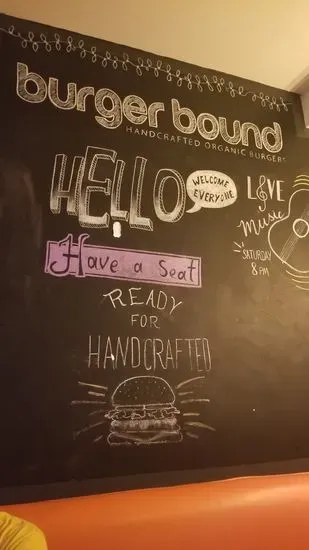 burger bound
HANDCRAFTED ORGANIC BURGERS
HELLO
WELCOME
EVERYONE
LOVE
Music
SATURDAY
8 PM
Have a Seat
READY
FOR
HANDCRAFTED